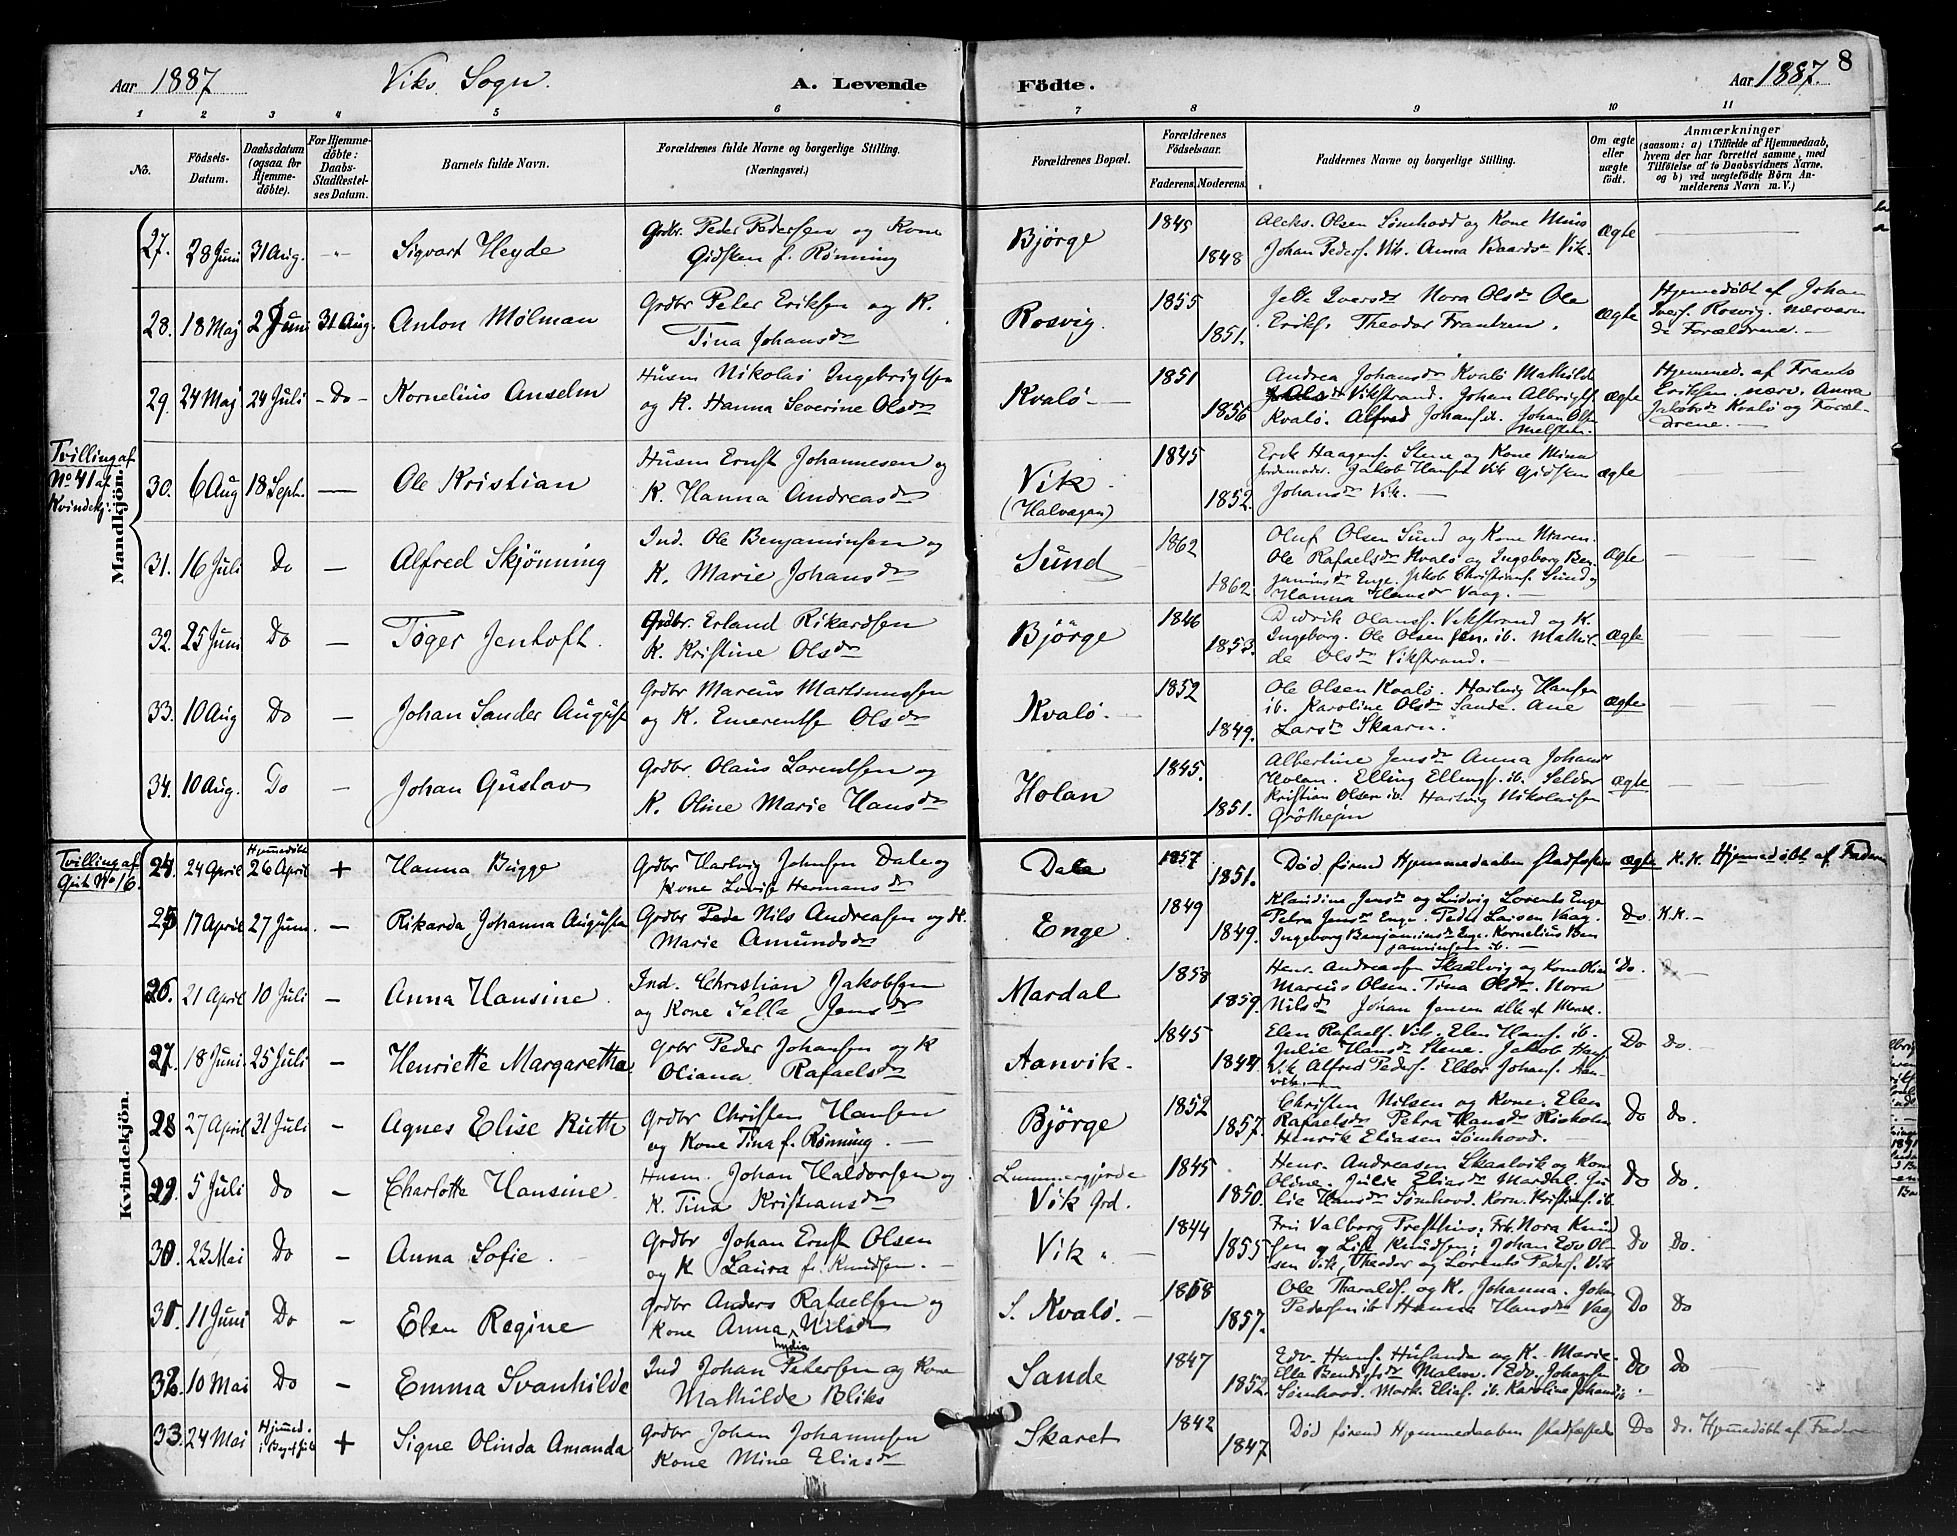 Aar 1887 Viks Sogn. A. Levende Födte. Aar 1887. 8
1 2 3 4 5 6 7 8 9 10 11
No.
Födsels-
Datum.
Daabsdatum
(ogsaa for
Hjemme-
döbte).
For Hjemme-
döbte:
Daabs-
Stadfæstel-
ses Datum.
Barnets fulde Navn.
Forældrenes fulde Navne og borgerlige Stilling.
(Næringsvei.)
Forældrenes Bopæl.
Forældrenes
Födselsaar.
Faderens. Moderens.
Faddernes Navne og borgerlige Stilling.
Om ægte
eller
uægte
födt.
Anmærkninger
(saasom: a) i Tilfælde af Hjemmedaab,
hvem der har forrettet samme, med
Tilföielse af to Daabsvidners Navne.
og b) ved uægtefödte Börn An-
melderens Navn m. V.)
Mandkjön.
27. 28 Juni 31 Aug. - Sigvart Heyde
Grdbr. Peder Pedersen og Kone
Gidsken f. Rönning
Björge 1845 1848
Aleks. Olsen Sömhovd og Kone
Johan Peders. Vik. Anna Baardsdr Vik.
ægte
28. 18 Maj 2 Juni 31 Aug. Anton Mölman
Grdbr Peter Eriksen og K.
Tina Johansdr
Rosvig. 1855 1851.
Iversdr Nora Olsdr Ole
Eriks. Theodor Frantzen.
ægte
Hjemmedöbt af Johan
Ivers. Rosvig. nærværen
de Forældrene. -
29. 24 Maj 24 Juli - Do - Kornelius Anselm
Husm Nikolai Ingebrigtsen
og K. Hanna Severine Olsdr
Kvalö - 1851 1856
Andrea Johansdr Kvalö Mathilde
Olsdr Vikstrand. Johan Albrigts
Kvalö. Alfred Johans. ib. Johan Ols
ægte
Hjemmed. af Frants
Eriksen. nærv. Anna
Jakobsdr Kvalö og Foræl-
drene. -
Tvilling af
No 41 af
Kvindekj.
30. 6 Aug 18 Septr. - Ole Kristian
Husm Ernst Johannesen og
K. Hanna Andreasdr
Vik.
(Halvagen)
1845 1852.
Erik Haagens. Stene og Kone Mina
Jordemoder. Jakob Hans. Vik Gidsken
Johansdr Vik. -
ægte
31. 16 Juli Do - Alfred Skjönning
Ind. Ole Benjaminsen og
K. Marie Johansdr
Sund 1862 1862.
Oluf Olsen Sund og Kone Maren.
Ole Rafaels Kvalö og Ingeborg Ben
jaminsdr Enge. Jakob Christians. Sund og
Hanna Hansdr Vaag. -
ægte
32. 25 Juni Do - Töger Jentoft.
Grdbr. Erland Rikardsen
K. Kristine Olsdr
Björge 1846 1853.
Didrik Olauss. Vikstrand og K.
Ingeborg. Ole Olsen jun. ib. Mathil-
de Olsdr Vikstrand. -
ægte
33. 10 Aug Do - Johan Sander August
Grdbr Marcus Martinussen
og K. Emerentse Olsdr
Kvalö. - 1852 1849.
Ole Olsen Kvalö. Hartvig Hansen
ib. Karoline Olsdr Sande. Ane
Larsdr Skaarn.
ægte
34. 10 Aug. Do - Johan Gustav
Grdbr. Olaus Lorentsen og
K. Oline Marie Hansdr
Holan 1845. 1851.
Albertine Jensdr Anna Johansdr
Holan. Elling Ellings. ib. Seldor
Kristian Olsen ib. Hartvig Nikolaisen
Gröttheim
ægte
Kvindekjön.
Tvilling af
Gut No 16.
24. 24 April Hjemmedöbt 26 April + Hanna Bugge
Grdbr Hartvig Johnsen Dale og
Kone Lovise Hermansdr
Dale 1857 1851.
Död förend Hjemmedaaben stadfæstes
ægte K.K. Hjemmedöbt af Faderen
25 17 April 27 Juni. - Rikarda Johanna Augusta
Grdbr Peder Nils Andreasen og K.
Marie Amundsdr
Enge. 1849 1849.
Klaudine Jensdr og Ludvig Lorents Enge
Petra Jensdr Enge. Peder Larsen Vaag.
Ingeborg Benjaminsdr Enge. Kornelius Ben
jaminsen ib. -
Do. K.K. -
26. 21 April 10 Juli - Anna Hansine.
Ind. Christian Jakobsen
og Kone Pella Jensdr
Mardal 1858 1859.
Henr. Andreasen Skaalvig og Kone
Marcus Olsen. Tina Olsdr. Nora
Nilsdr Johan Jensen alle af
Do.
27. 18 Juni. 25 Juli - Henriette Margaretha
Grbr Peder Johansen og K
Oliana Rafaelsdr
Aanvik. 1845 1844
Elen Rafaels. Vik. Elen Hans. ib.
Julie Hansdr Stene. Jakob Hans.
Vik Alfred Peders. Eldor Johans. Aan-
vik.
Do do.
28 27 April 31 Juli - Agnes Elise Ruth
Grdbr Christen Hansen
og Kone Tina f. Rönning. -
Björge 1852 1857.
Christen Nilsen og Kone. Elen
Rafaelsdr Petra Hansdr Risholm
Henrik Eliasen Sömhovd. -
Do do.
29. 5 Juli do - Charlotte Hansine.
Husm. Johan Haldorsen og
K. Tina Kristiansdr
Lummergjerde
Vik Grd.
1845 1850.
Henr. Andreasen Skaalvik og Kone
Oldine. Julie Eliasdr Mardal. Ju
lie Hansdr Sömhovd. Korn. Kristians. ib.
Do do.
30. 23 Mai Do - Anna Sofie.
Grdbr Johan Ernst Olsen
og K Laura f. Knudsen. -
Vik - 1844 1855
Fru Valborg Tresthus. Frk. Nora Knud
sen og Lise Knudsen; Johan Edv Ol-
sen Vik, Theodor og Lorents Peders. Vik
Do Do.
31. 11 Juni Do - Elen Regine
Grdbr Anders Rafaelsen og
Kone Anna Nilsdr
Lydia
S. Kvalö. 1858 1857.
Ole Tharalds. og K. Johanna. Johan
Pedersen ib Hanna Hansdr Vaag
Do Do
32 10 Mai Do - Emma Svanhilde
Ind Johan Petersen og Kone
Mathilde Bliks
Sande 1847 1852.
Edv. Hans. Husande og K. Marie.
Ella Bendigsdr Malm. Edv. Johansen
Sömhovd. Mark. Elias. ib. Karoline Johansdr ib
Do do
33. 24 Mai Hjemmed. + Signe Olinda Amanda
Grdbr Johan Johannsen
Kone Mine Eliasdr
Skaret 1842 1847
Död förend Hjemmedaaben stadfæstedes
Do do. Hjemmedöbt af Faderen